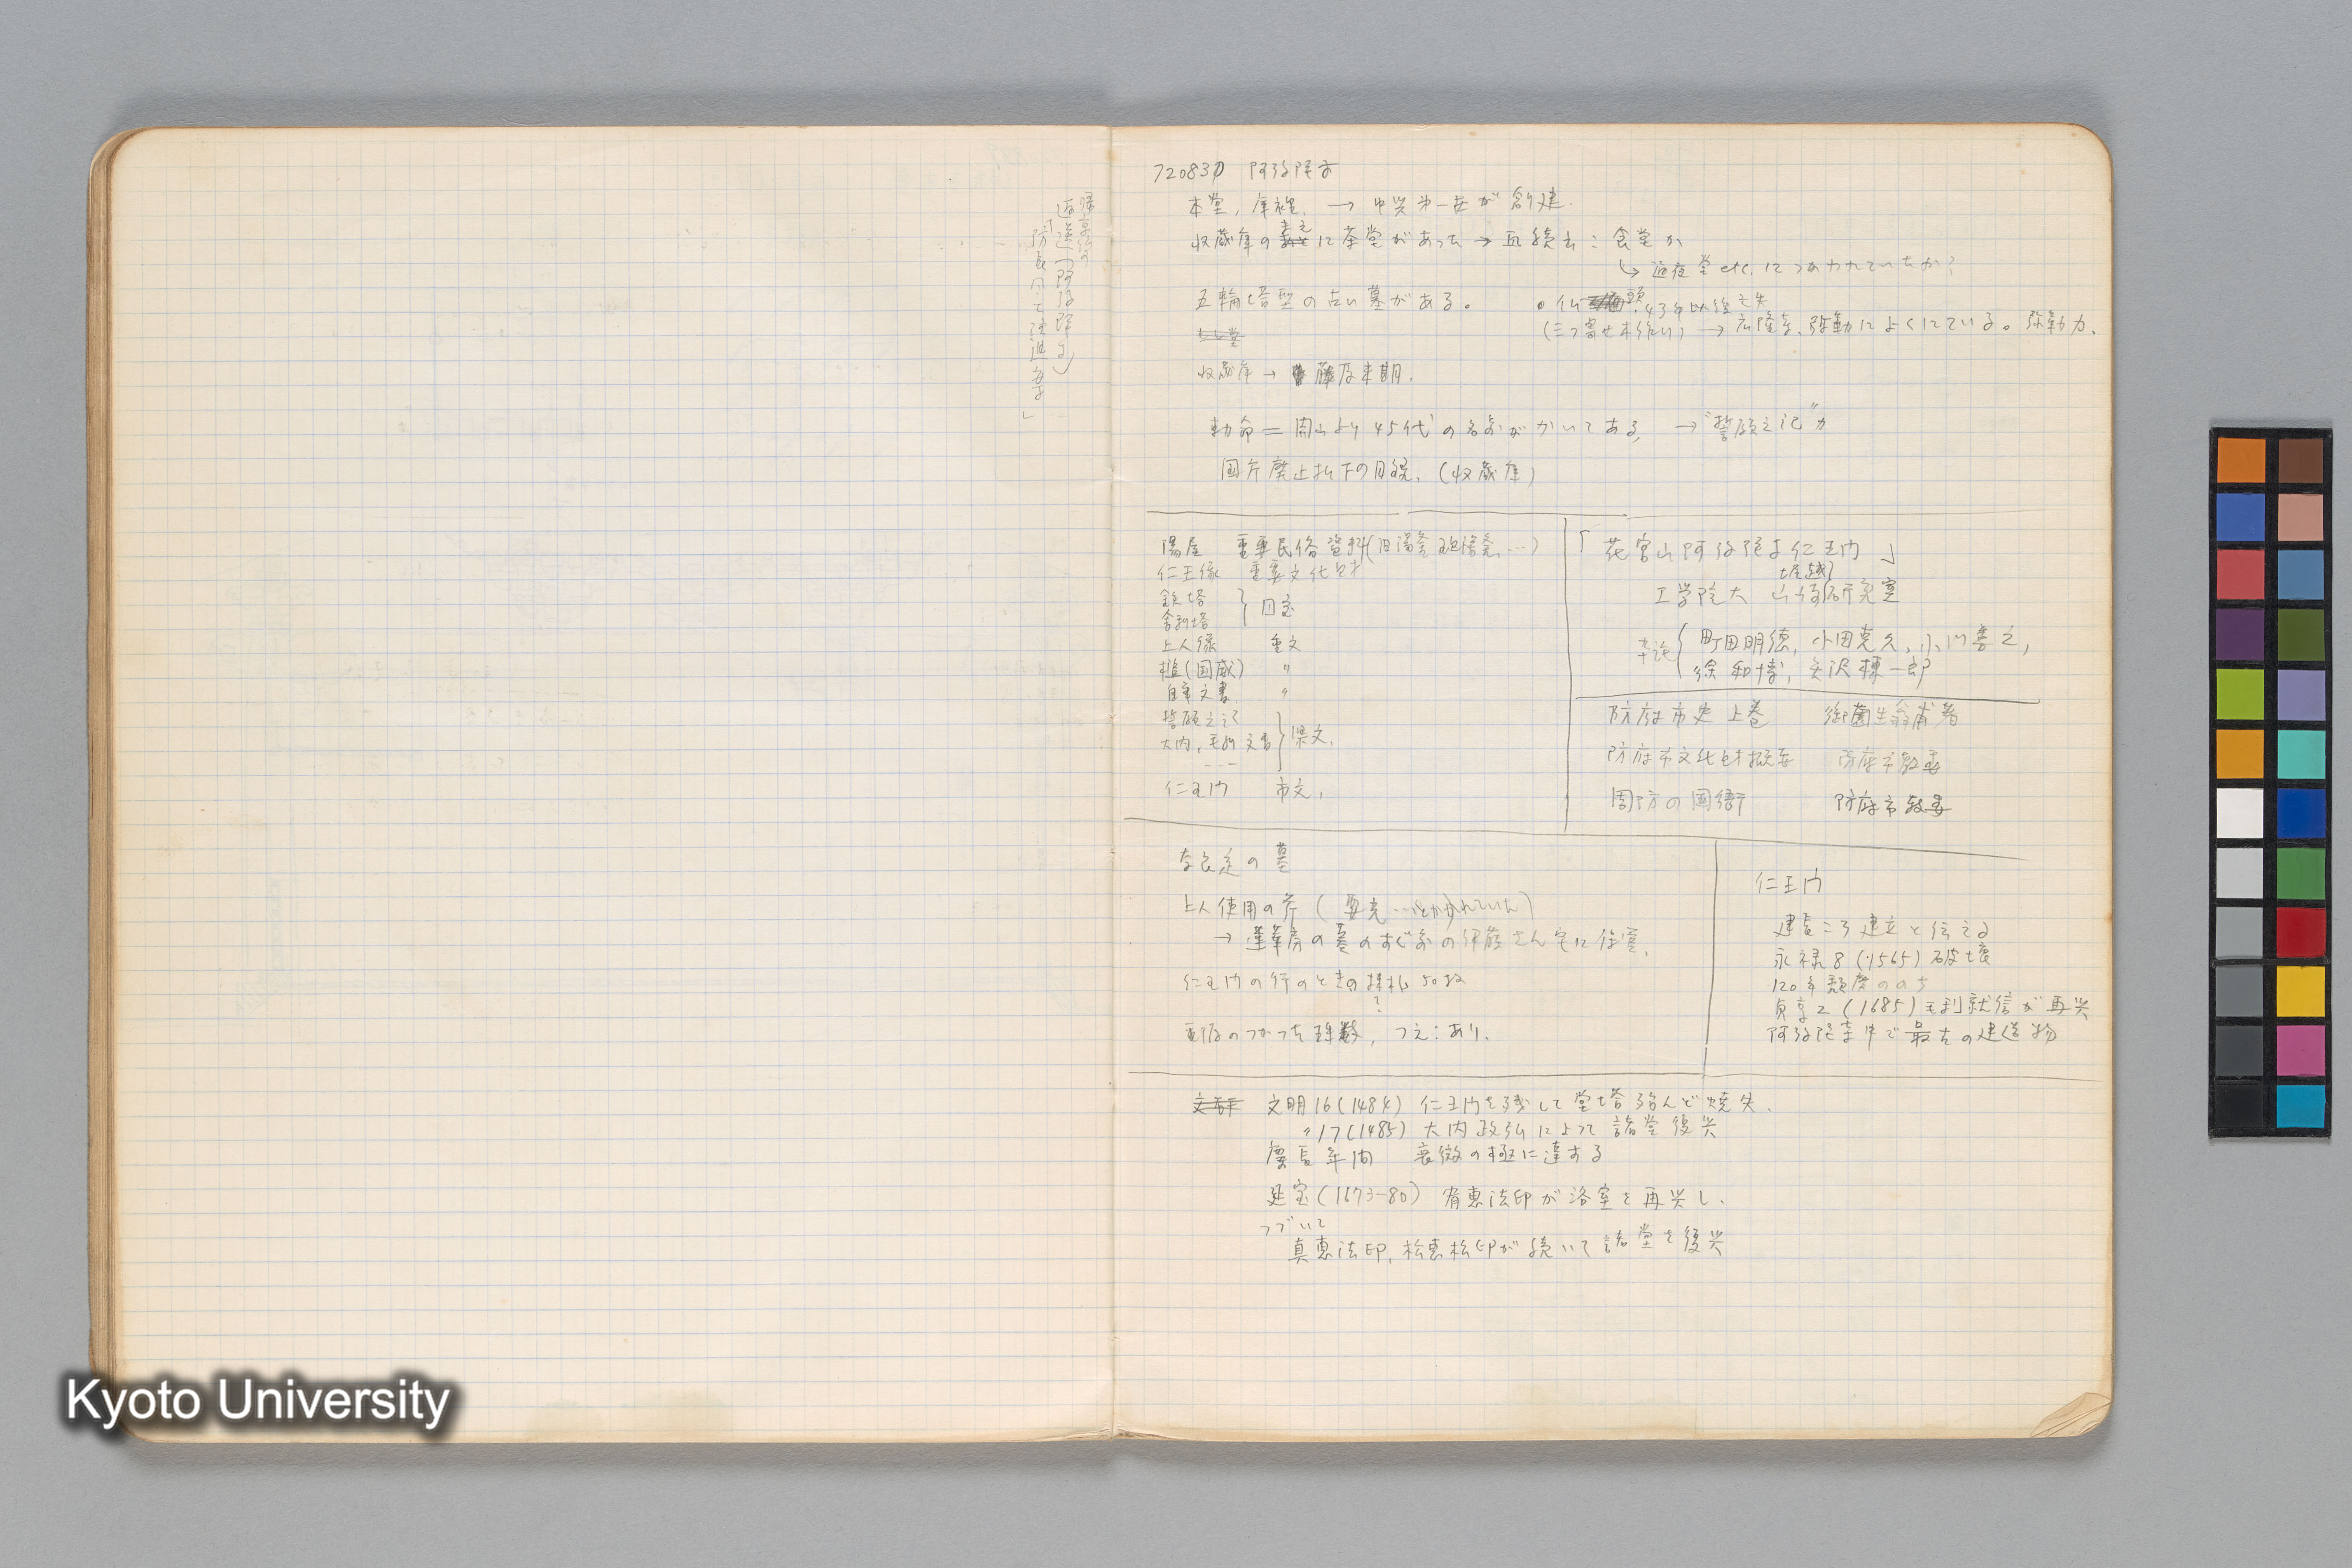 帰京後の
返送(阿弥陀寺)
「防長国
720830 阿弥陀寺
本堂,庫裡. → 中興 が創建.
収蔵庫の まえ に茶堂があった → : 食堂か
↳ 逮夜堂etc.につかわれていたか?
五輪塔型の古い墓がある。
○仏頭.43年以後 亡失
(三つ寄せ木 ) → 広隆寺.弥勒によくにている。弥勒か.
収蔵庫 → 藤原末期.
勅命=開山より45代の名前がかいてある, → "誓願之記"か
国庁廃止払下の目録.(収蔵庫)
湯屋 重要民俗資料(旧湯釜 …)
仁王像 重要文化財
鉄塔
舎利塔 } 国宝
上人像 重文
槌(国蔵) 〃
自筆文書 〃
誓願之記
大内,毛利文書 } 県文.
---
仁王門 市文.
「花宮山阿弥陀寺仁王門」
堀越
工学院大 山崎研究室
卒論 { 町田明徳, 小田克久, 小川善之,
徐和博, 矢沢棟一郎
防府市史 上巻 御薗生翁甫著
防府市文化財概要 防府市教委
周防の国衙 防府市教委
奈良定の墓
上人使用の斧( …とかかれていた)
→ 蓮華房の墓のすぐ前の伊藤さん宅に保管.
仁王門の行のときの 札 50枚
?
重源のつかった珠数, つえ:あり.
仁王門
建長ころ建立と伝える
永禄8(1565)破壊
120年頽廃ののち
貞享2(1685)毛利就信が再興
阿弥陀寺中で最古の建造物
文明16(1484) 仁王門を残して堂塔殆んど焼失.
〃17(1485) 大内政弘によって諸堂復興
慶長年間 衰微の極に達する
延宝(1673-80) 有恵法印が浴室を再興し.
つづいて
真恵法印, 松恵松印が続いて諸堂を復興
Kyoto University